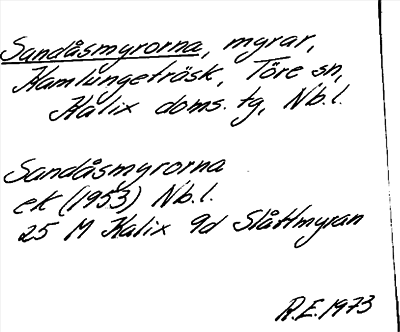 Sandåsmyrorna, myrar,
Kamlungeträsk, Töre sn,
Kalix doms. tg, Nb.l.
Sandåsmyrorna
ek (1953) Nb.l.
25 M Kalix 9d Slåttmyran
R.E. 1973